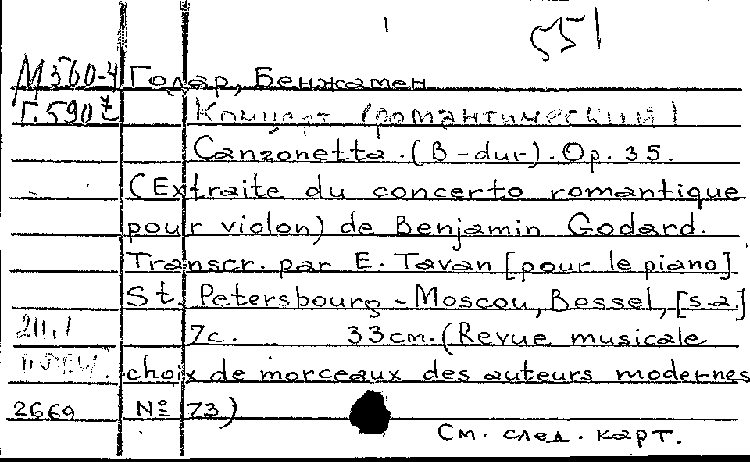 551
М360-4 Годар, Бенжамен
Г.590 Концерт (романтический)
Canzonetta. (B-dur). Op. 35.
(Extraite du concerto romantique
pour violon) de Benjamin Godard.
Transcr. par E. Tavan [pour le piano].
St. Petersbourg - Moscou, Bessel, [s.a.]
7с. 33cm. (Revue musicale
choix de morceaux des auteurs modernes
2669 № 73)
См. след. карт.